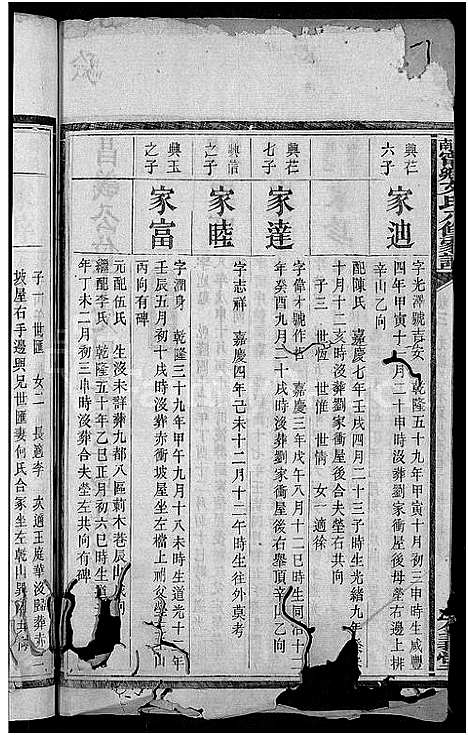 興花六子
家迪
字光澤號吉安 乾隆五十九年甲寅十月初三申時生咸豐
四年甲寅十月二十申時沒葬劉家衝屋後母塋右邊上排
辛山乙向
配陳氏 嘉慶七年壬戌四月二十三子時生光緒九年
十月十二亥時沒葬劉家衝屋後合夫塋右共向
子三 世恆 世惟 世情 女一適徐
興花七子
家達
字偉才號作哲 嘉慶三年戊午八月十二巳時生同治十二
年癸酉九月二十戌時沒葬劉家衝屋後右舉頂辛山乙向
興信之子
家睦
字志祥 嘉慶四年己未十二月十二午時生往外莫考
興玉之子
家富
字潤身 乾隆三十九年甲午九月十八未時生道光十二年
壬辰五月初十戌時沒葬赤衝坡屋坐左檔上祔父
丙向有碑
元配伍氏 生沒未詳葬九都八區莿木巷辰山
繼配李氏 乾隆五十年乙巳正月初六巳時生道
年丁未二月初三申時沒葬合夫塋左共向有碑
子一 世匯 女二 長適李 次適王庭華沒歸葬赤
坡屋右手邊與兄世匯妻何氏合冢坐左乾山巽向共